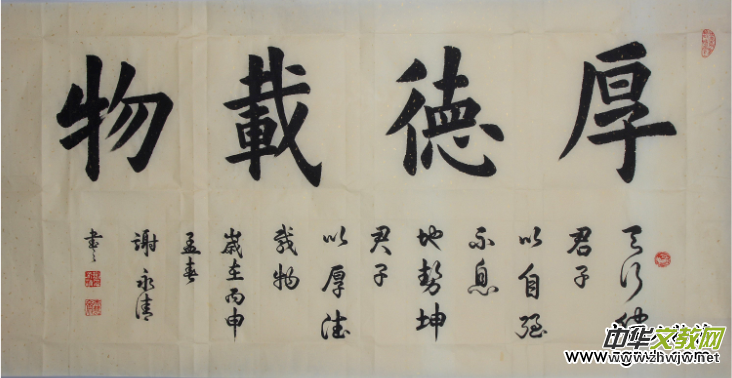 厚德載物
天行健
君子
以自强
不息
地勢坤
君子
以厚德
載物
歲在丙申
孟春
謝永清
書
中华文教网